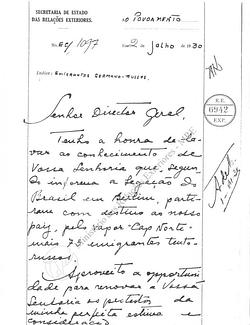 SECRETARIA DE ESTADO
DAS RELAÇÕES EXTERIORES.
DO POVOAMENTO
Em 2 de Julho de 1930
Indice: EMIGRANTES GERMANO-RUSSOS.
Senhor Director Geral,
R.E.
6942
EXP.
Tenho a honra de le-
var ao conhecimento de
Vossa Senhoria que, segun-
do informa a Legação do
Brasil em Berlim, parti-
ram com destino ao nosso
paiz, pelo vapor "Cap Norte"
mais 7 emigrantes teuto-
russos.
Aproveito a opportuni-
dade para renovar a Vossa
Senhoria os protestos da
minha perfeita estima e
consideração